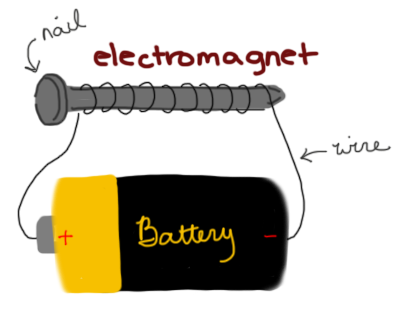 nail
electromagnet
wire
+ Battery -